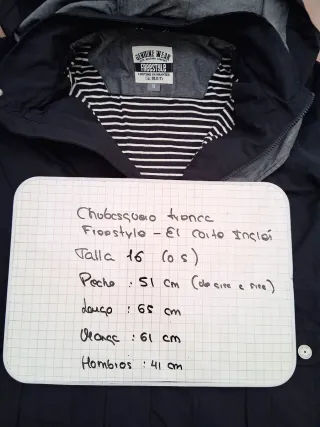 GENUINE WEAR
FREESTYLE
Chubasquero trenca
Freestyle - El Corte Inglés
Talla 16 (o S)
Pecho : 51 cm (de sisa a sisa)
Largo : 65 cm
Manga : 61 cm
Hombros : 41 cm